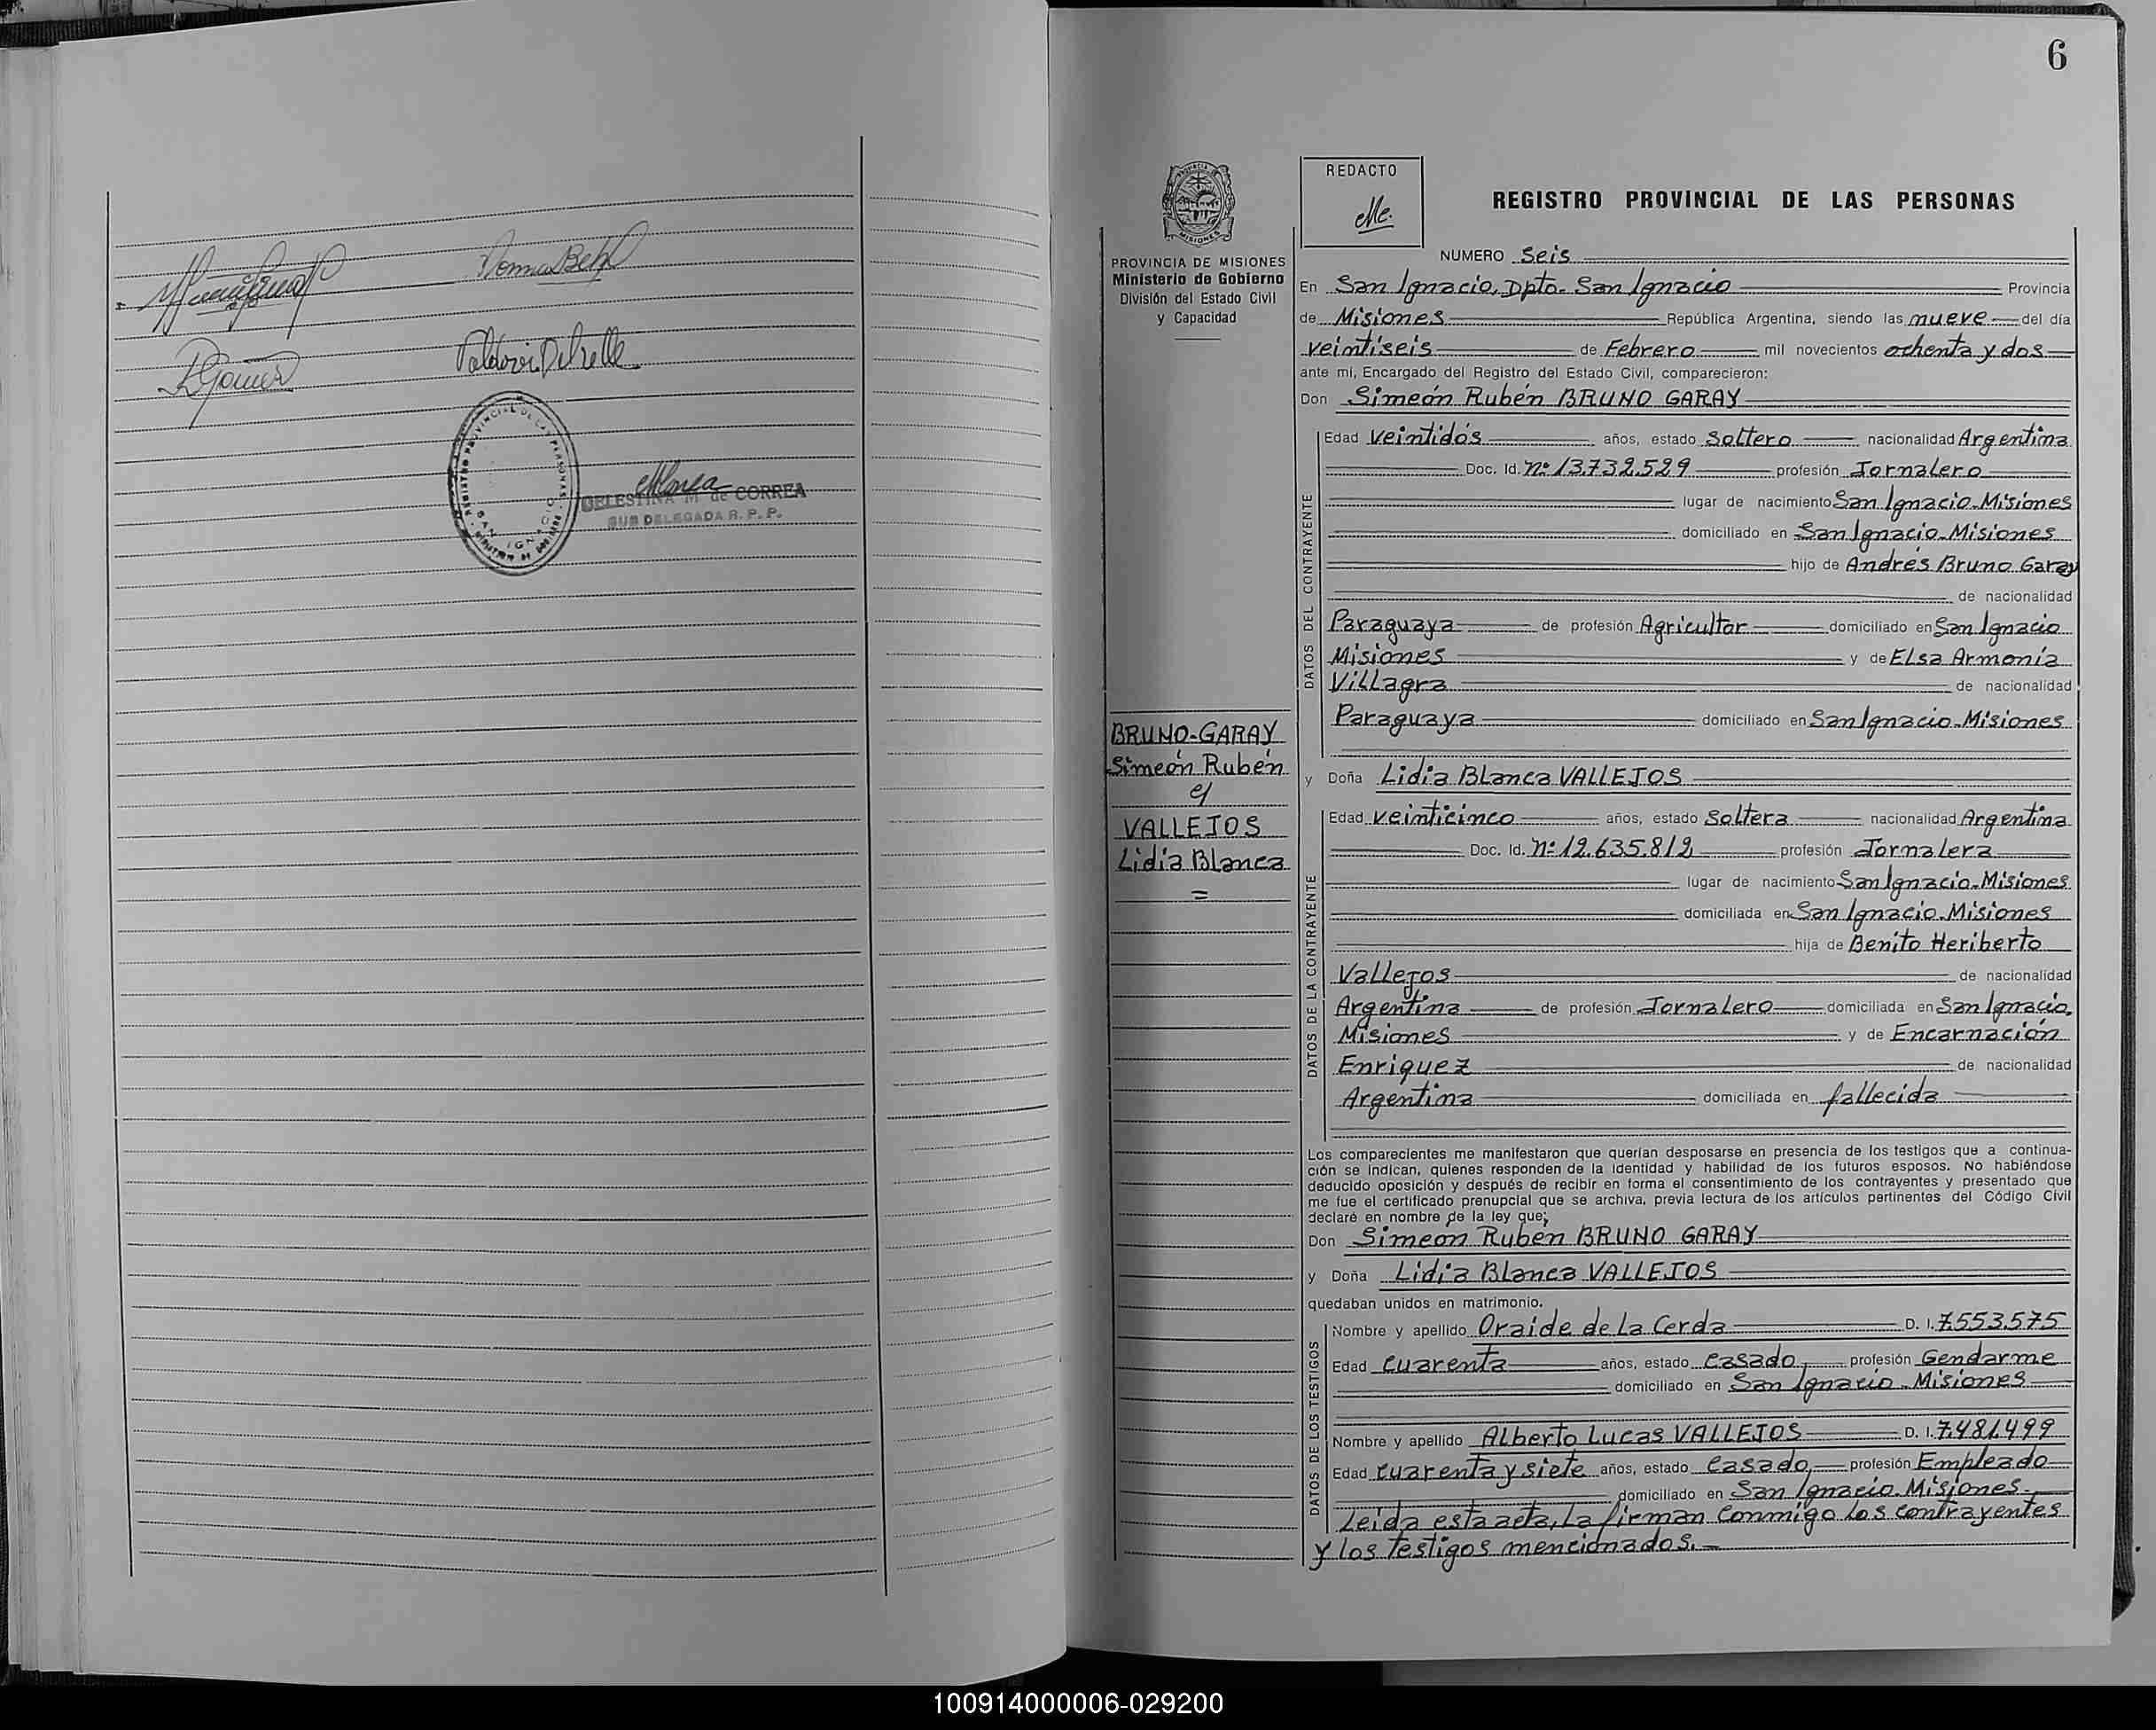 CELESTINA M de CORREA
SUB DELEGADA R. P. P.
SAN IGNACIO
6
PROVINCIA DE MISIONES
Ministerio de Gobierno
División del Estado Civil
y Capacidad
BRUNO-GARAY
Simeón Rubén
c/
VALLEJOS
Lidia Blanca
=
REDACTO
REGISTRO PROVINCIAL DE LAS PERSONAS
NUMERO Seis
En San Ignacio, Dpto. San Ignacio Provincia
de Misiones República Argentina, siendo las nueve del día
veintiseis de Febrero mil novecientos ochenta y dos
ante mí, Encargado del Registro del Estado Civil, comparecieron:
Don Simeón Rubén BRUNO GARAY
DATOS DEL CONTRAYENTE
Edad veintidós años, estado Soltero nacionalidad Argentina
Doc. Id. nº 13.732.529 profesión Jornalero
lugar de nacimiento San Ignacio-Misiones
domiciliado en San Ignacio-Misiones
hijo de Andrés Bruno Garay
de nacionalidad
Paraguaya de profesión Agricultor domiciliado en San Ignacio
Misiones y de Elsa Armonía
Villagra de nacionalidad
Paraguaya domiciliado en San Ignacio-Misiones
y Doña Lidia Blanca VALLEJOS
DATOS DE LA CONTRAYENTE
Edad veinticinco años, estado Soltera nacionalidad Argentina
Doc. Id. nº 12.635.812 profesión Jornalera
lugar de nacimiento San Ignacio-Misiones
domiciliada en San Ignacio-Misiones
hija de Benito Heriberto
Vallejos de nacionalidad
Argentina de profesión Jornalero domiciliada en San Ignacio,
Misiones y de Encarnación
Enriquez de nacionalidad
Argentina domiciliada en fallecida
Los comparecientes me manifestaron que querían desposarse en presencia de los testigos que a continua-
ción se indican, quienes responden de la identidad y habilidad de los futuros esposos. No habiéndose
deducido oposición y después de recibir en forma el consentimiento de los contrayentes y presentado que
me fue el certificado prenupcial que se archiva, previa lectura de los artículos pertinentes del Código Civil
declaré en nombre de la ley que;
Don Simeón Rubén BRUNO GARAY
y Doña Lidia Blanca VALLEJOS
quedaban unidos en matrimonio.
DATOS DE LOS TESTIGOS
Nombre y apellido Oraide de la Cerda D. I. 7.553.575
Edad cuarenta años, estado casado, profesión Gendarme
domiciliado en San Ignacio-Misiones
Nombre y apellido Alberto Lucas VALLEJOS D. I. 7.481.499
Edad cuarenta y siete años, estado casado, profesión Empleado
domiciliado en San Ignacio-Misiones.
Leida esta acta, la firman conmigo los contrayentes
y los testigos mencionados.
100914000006-029200